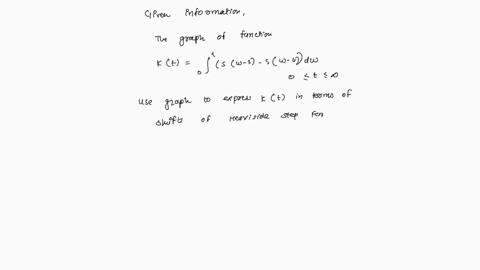 Given information,
The graph of function
K(t) = ∫₀ᵗ (S(w-s) - S(w-6)) dw
0 ≤ t ≤ ∞
Use graph to express K(t) in terms of
shift of Heaviside step fun